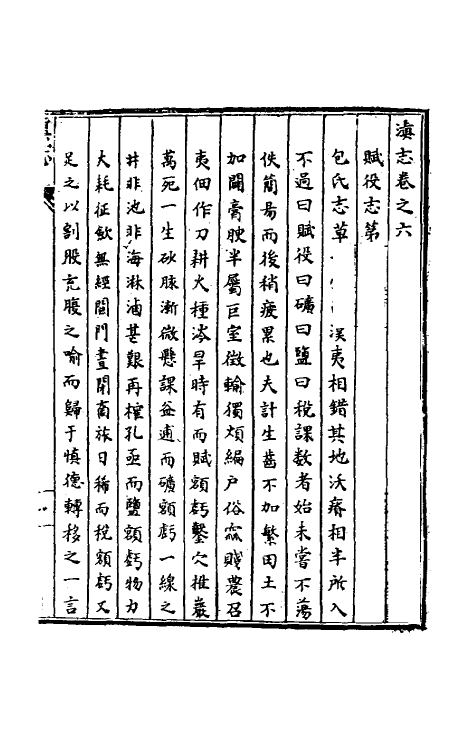 滇志卷之六
賦役志第
包氏志草
漢夷相錯其地沃瘠相半所入
不過曰賦役曰礦曰鹽曰稅課数者始未嘗不蕩
佚簡易而後稍疲累也夫計生齒不加繁田土不
加闢膏腴半屬巨室徵輸獨煩編戶俗窳賤農召
夷佃作刀耕火種澇旱時有而賦額虧鑿穴推巖
萬死一生砂脉漸微懸課益逋而礦額虧一線之
井非池非海淋滷甚艱再榷孔亟而鹽額虧物力
大耗征歛無經閭門晝閉商旅日稀而稅額虧又
足之以割股充腹之喻而歸于慎德轉移之一言